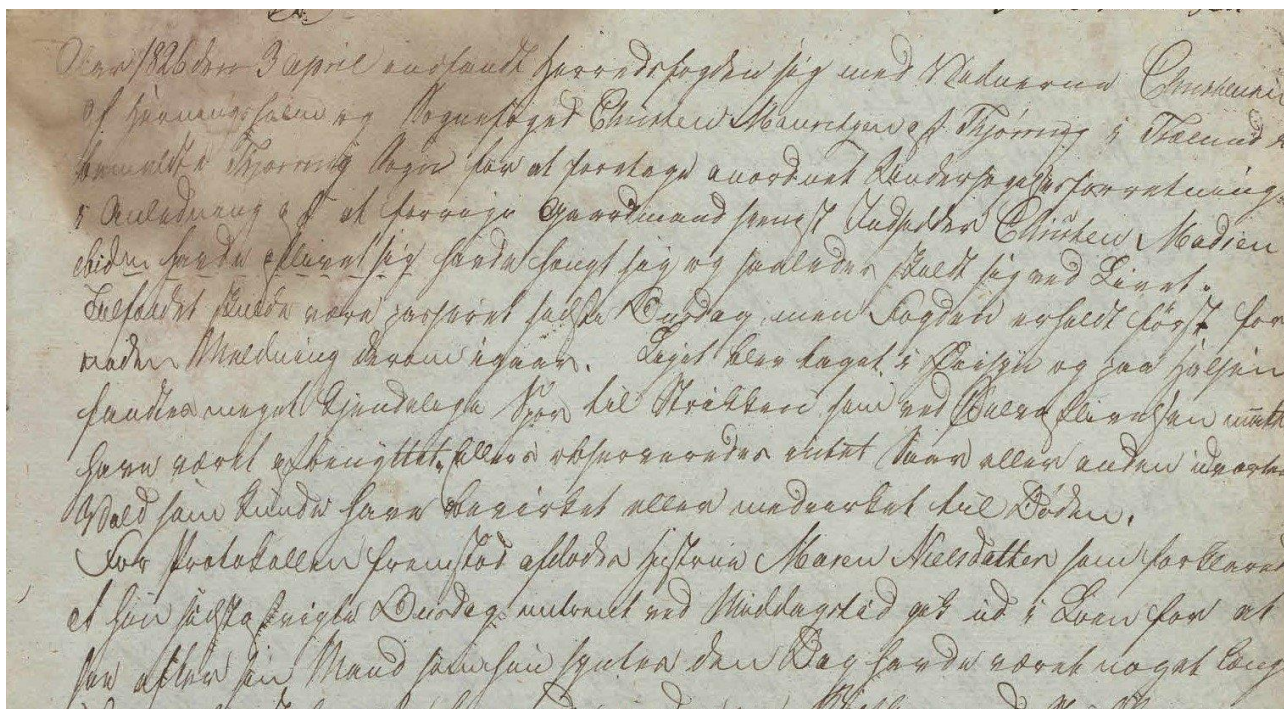 Aar 1826 den 3 april indfandt Herredsfogden sig med Vidnerne Christen
af Herningsholm og Sognefoged Christen Mouritzen af Thjørring i Tælund
bemeldte Thjørring Sogn for at foretage anordnet Undersøgelsesforretning
i Anledning af at forrige Gaardmand Indsidder Christen Madsen
havde aflivet sig havde hængt sig og saaledes skildt sig ved Livet.
Tilfældet skulde være passeret sidste Onsdag men Fogden erholdt først for
Meldning derom igaar. Liget blev taget i Øiesyn og paa Halsen
fandtes meget kjendelige Spor til Strikken som ved Selvaflivelsen maatte
have været afbenyttet. Ellers observeredes intet Saar eller anden udvortes
Vold som kunde have bevirket eller medvirket til Døden.
For Protokollen fremstod afdødes Hustrue Maren Nielsdatter som forklarede
at hun sidstafvigte Onsdag omtrent ved Middagstid gik ud i Loen for at
see efter sin Mand som hun syntes den Dag havde været noget længe